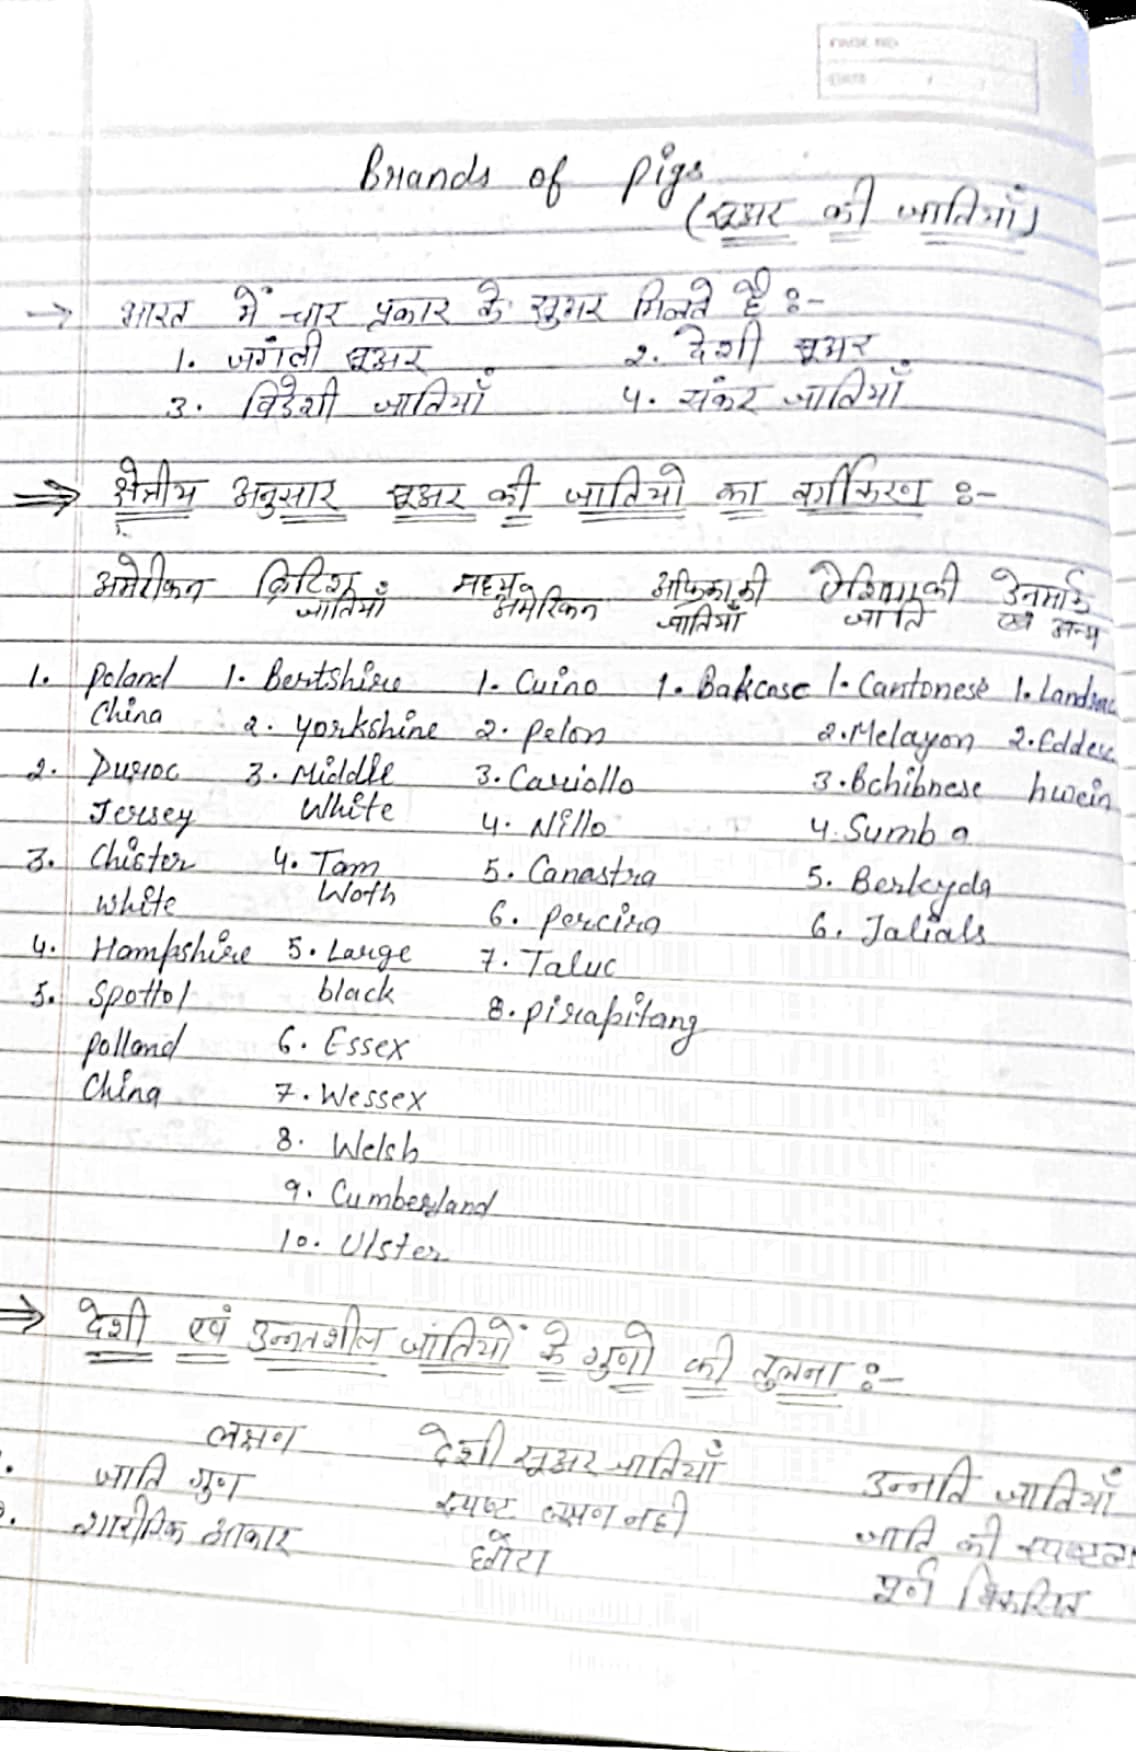 PAGE NO.
DATE
Brands of pigs
(सूअर की जातियाँ)
→ भारत में चार प्रकार के सुगर मिलते है :-
1. जगंली सूअर 2. देशी सूअर
3. विदेशी जातियाँ 4. संकर जातियाँ
⇒ क्षेत्रीय अनुसार सूअर की जातियो का वर्गीकरण :-
अमेरीकन ब्रिटिश मध्य अफ्रिका की ऐशिया की डेनमार्क
जातियाँ अमेरिकन जातियाँ जाति एवं अन्य
1. Poland 1. Bertshire 1. Cuino 1. Bakcose 1. Cantonese 1. Landrac
China 2. Yorkshire 2. Pelon 2. Melayon 2. Edder
2. Duroc 3. Middle 3. Cariollo 3. Bchibnese hwein
Jersey White 4. Nillo 4. Sumba
3. Chister 4. Tam 5. Canastra 5. Berkyda
white Woth 6. Percira 6. Jalials
4. Hampshire 5. Large 7. Taluc
5. Spottol black 8. Pirapitang
polland 6. Essex
China 7. Wessex
8. Welsh
9. Cumberland
10. Ulster
⇒ देशी एवं उन्नतशील जातियों के गुणो की तुलना :-
लक्षण देशी सूअर जातियाँ उन्नति जातियाँ
जाति गुण स्पष्ट लक्षण नही जाति की स्पष्टता
शारीरिक आकार छोटा पूर्ण विकसित